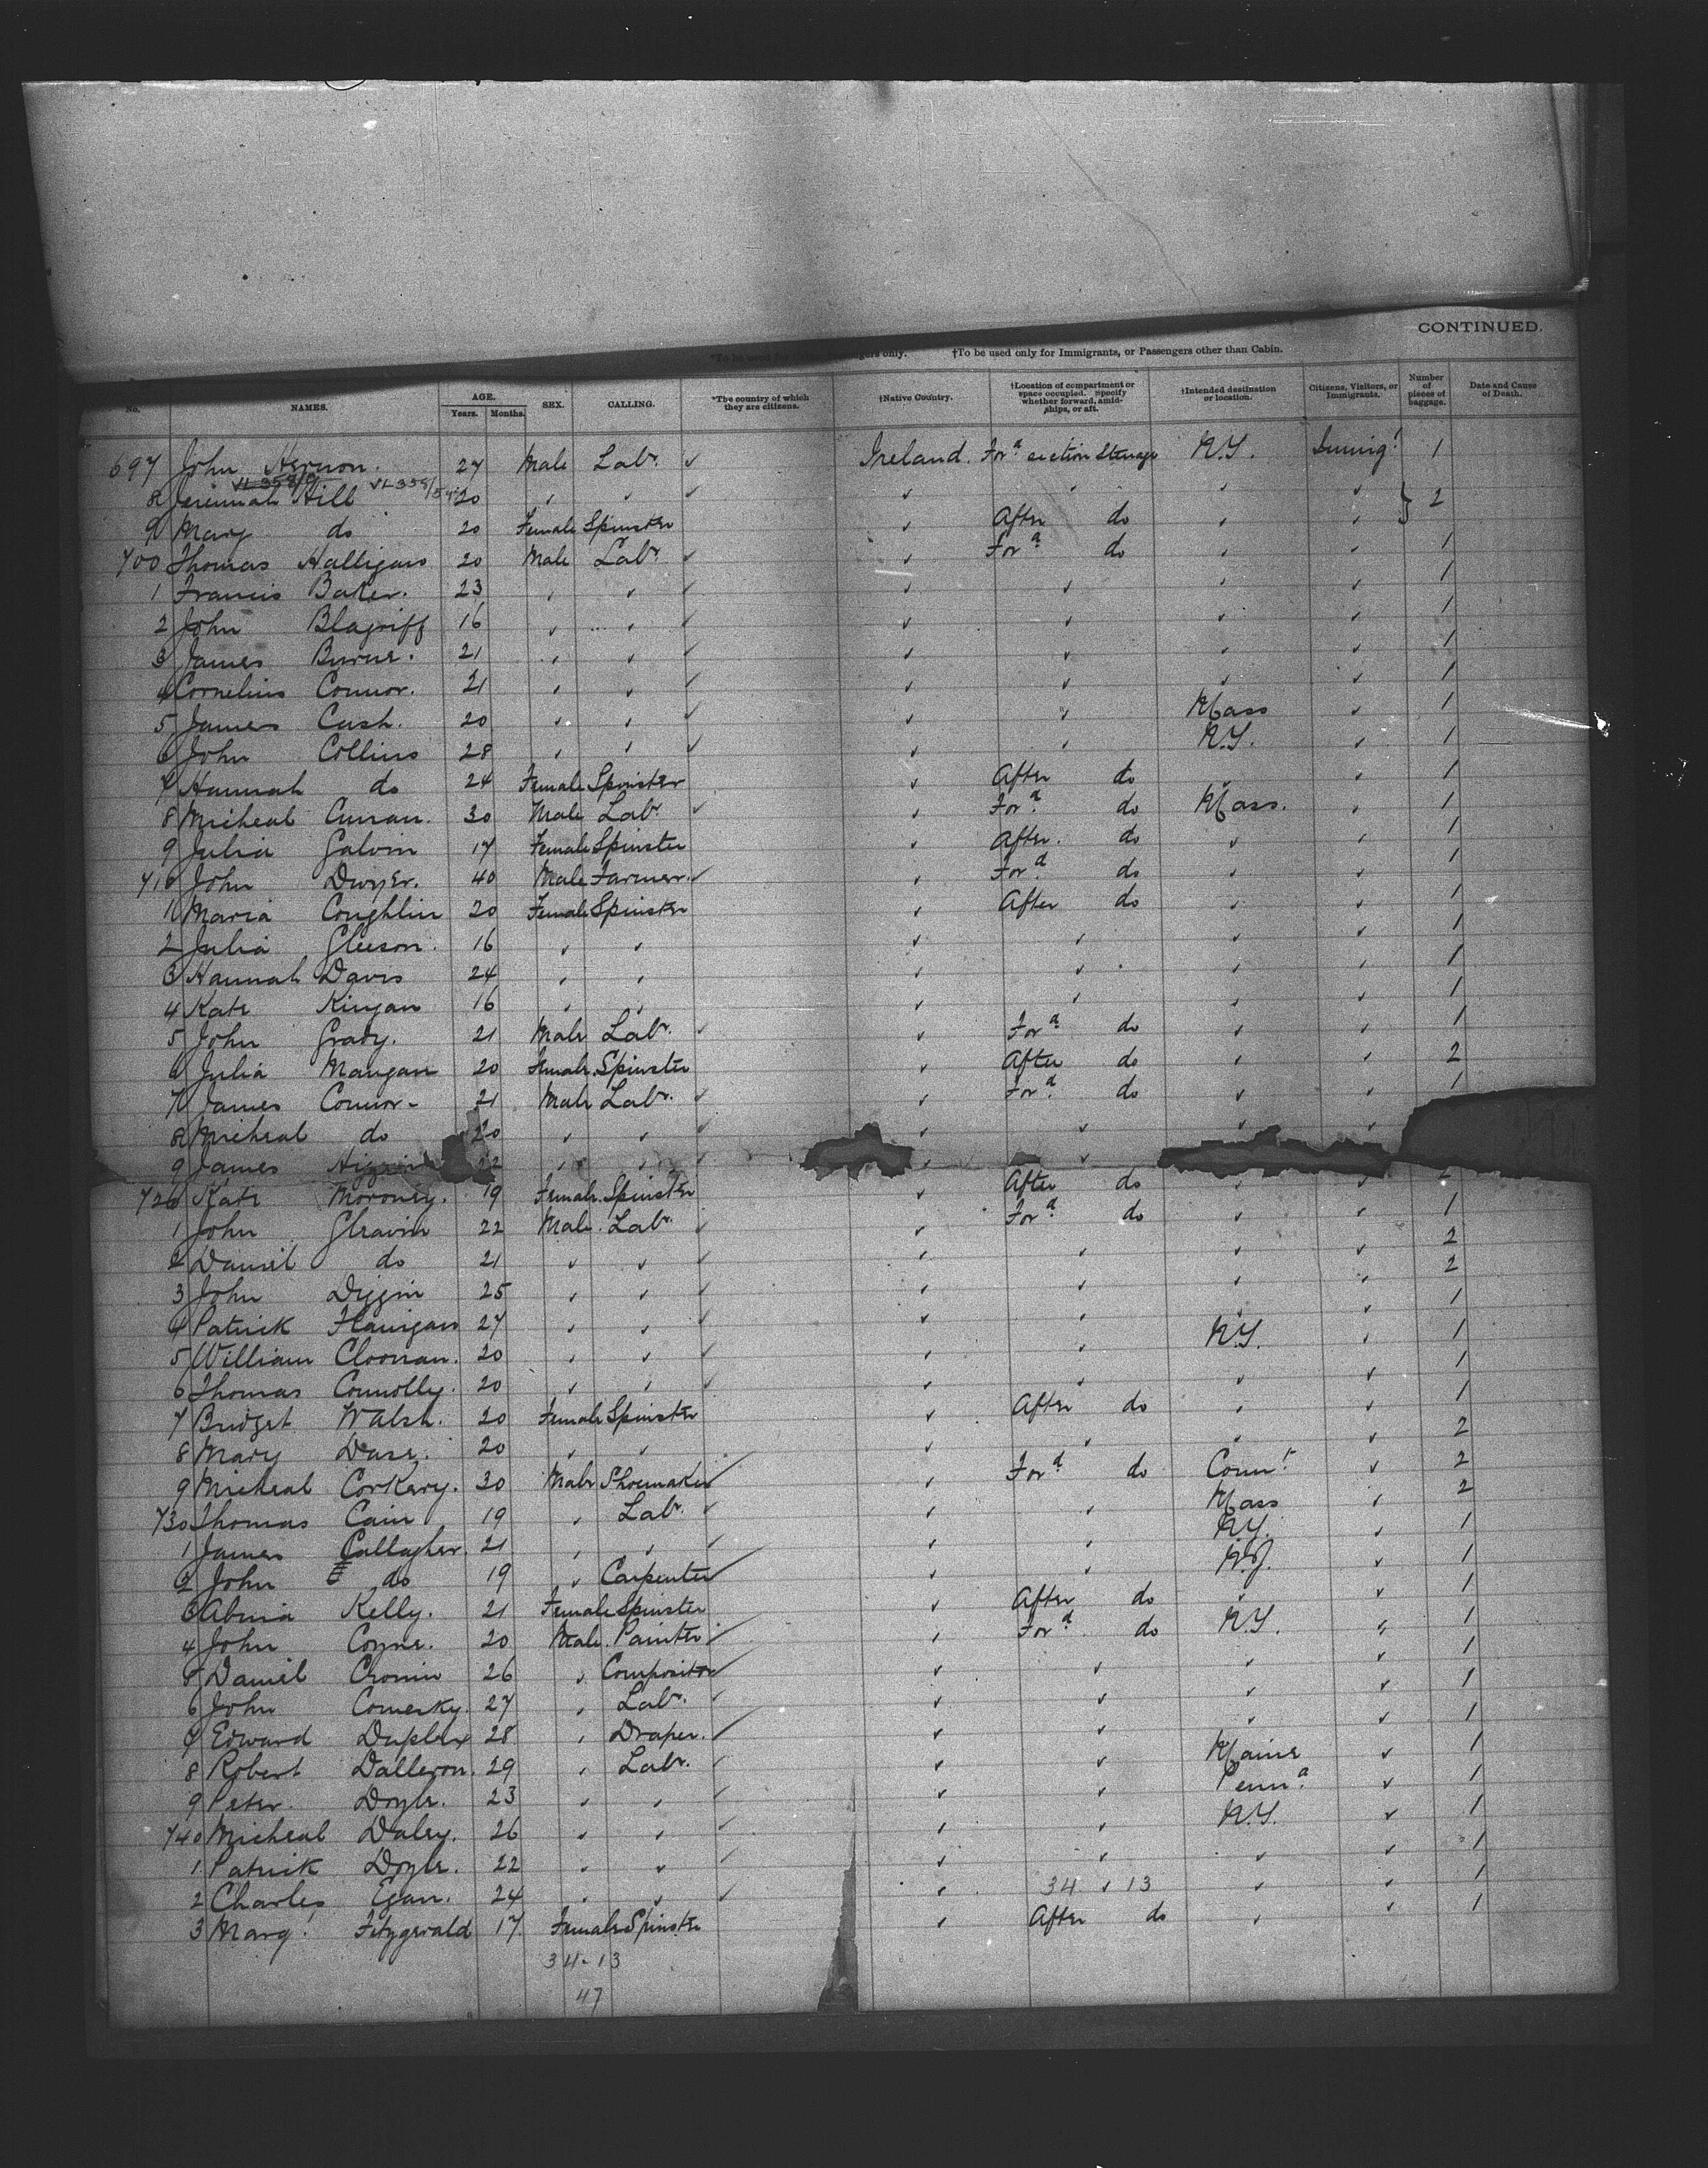 CONTINUED.
*To be used for Cabin Passengers only. †To be used only for Immigrants, or Passengers other than Cabin.
No. NAMES. AGE. Years. Months. SEX. CALLING. *The country of which they are citizens. †Native Country. †Location of compartment or space occupied. Specify whether forward, amidships, or aft. †Intended destination or location. Citizens, Visitors, or Immigrants. Number of pieces of baggage. Date and Cause of Death.
697 John Hernon. 27 Male Labr. ✓ Ireland. Ford section Steerage N.Y. Immigt 1
8 Jeremiah Hill 20 ✓ ✓ ✓ ✓ ✓ ✓ ✓ } 2
9 Mary do 20 Female Spinster ✓ After do ✓ ✓
700 Thomas Halligan 20 Male Labr ✓ ✓ Ford do ✓ ✓ 1
1 Francis Baker. 23 ✓ ✓ ✓ ✓ ✓ ✓ ✓ 1
2 John Blagriff 16 ✓ ✓ ✓ ✓ ✓ ✓ ✓ 1
3 James Burne. 21 ✓ ✓ ✓ ✓ ✓ ✓ ✓ 1
4 Cornelius Connor. 21 ✓ ✓ ✓ ✓ ✓ ✓ ✓ 1
5 James Cash. 20 ✓ ✓ ✓ ✓ ✓ Mass ✓ 1
6 John Collins 28 ✓ ✓ ✓ ✓ ✓ N.Y. ✓ 1
7 Hannah do 24 Female Spinster ✓ After do ✓ ✓ 1
8 Micheal Curran. 30 Male Labr ✓ ✓ Ford do Mass. ✓ 1
9 Julia Galvin 17 Female Spinster ✓ After. do ✓ ✓ 1
710 John Dwyer. 40 Male Farmer. ✓ ✓ Ford do ✓ ✓ 1
11 Maria Coughlin 20 Female Spinster ✓ After do ✓ ✓ 1
2 Julia Gleeson. 16 ✓ ✓ ✓ ✓ ✓ ✓ 1
3 Hannah Davis 24 ✓ ✓ ✓ ✓ ✓ ✓ 1
4 Kate Kinyan 16 ✓ ✓ ✓ ✓ ✓ ✓ 1
5 John Grady. 21 Male Labr. ✓ ✓ Ford do ✓ ✓ 1
6 Julia Mangan 20 Female. Spinster ✓ After do ✓ ✓ 2
7 James Connor- 21 Male Labr. ✓ ✓ Ford do ✓ ✓ 1
8 Micheal do 20 ✓ ✓ ✓ ✓ ✓ ✓ ✓
9 James 22 ✓ ✓ ✓ ✓ ✓
720 Kate Moroney. 19 Female. Spinster ✓ After do ✓ ✓
1 John Gleavin 22 Male. Labr. ✓ ✓ Ford do ✓ ✓ 1
2 Daniel do 21 ✓ ✓ ✓ ✓ ✓ ✓ ✓ 2
3 John Diggin 25 ✓ ✓ ✓ ✓ ✓ ✓ ✓ 2
4 Patrick Flanigan 27 ✓ ✓ ✓ ✓ ✓ ✓ ✓ 1
5 William Cloonan. 20 ✓ ✓ ✓ ✓ ✓ N.Y. ✓ 1
6 Thomas Connolly. 20 ✓ ✓ ✓ ✓ ✓ ✓ ✓ 1
7 Bridget Walsh. 20 Female Spinster ✓ After do ✓ ✓ 1
8 Mary 20 ✓ ✓ ✓ ✓ ✓ ✓ 2
9 Micheal Corkery. 30 Male Shoemaker ✓ ✓ Ford do Connt ✓ 2
730 Thomas Cain 19 ✓ Labr. ✓ ✓ ✓ Mass ✓ 2
1 James Gallagher. 21 ✓ ✓ ✓ ✓ ✓ N.Y. ✓ 1
2 John do 19 ✓ Carpenter ✓ ✓ ✓ N.J. ✓ 1
3 Kelly. 21 Female Spinster ✓ After do ✓ ✓ 1
4 John Coyne. 20 Male. Painter ✓ ✓ Ford do N.Y. ✓ 1
5 Daniel Cronin 26 ✓ Compositor ✓ ✓ ✓ ✓ ✓ 1
6 John Comerky. 27 ✓ Labr. ✓ ✓ ✓ ✓ ✓ 1
7 Edward Duplex 28 ✓ Draper. ✓ ✓ ✓ ✓ ✓ 1
8 Robert Dalleron. 29 ✓ Labr. ✓ ✓ ✓ Maine ✓ 1
9 Peter. Doyle. 23 ✓ ✓ ✓ ✓ ✓ Penna ✓ 1
740 Micheal Daley. 26 ✓ ✓ ✓ ✓ ✓ N.Y. ✓ 1
1 Patrick Doyle. 22 ✓ ✓ ✓ ✓ ✓ ✓ ✓ 1
2 Charles Egan. 24 ✓ ✓ ✓ ✓ 34 ✓ 13 ✓ ✓ 1
3 Margt Fitzgerald 17. Female Spinster ✓ After do ✓ ✓ 1
34-13
47